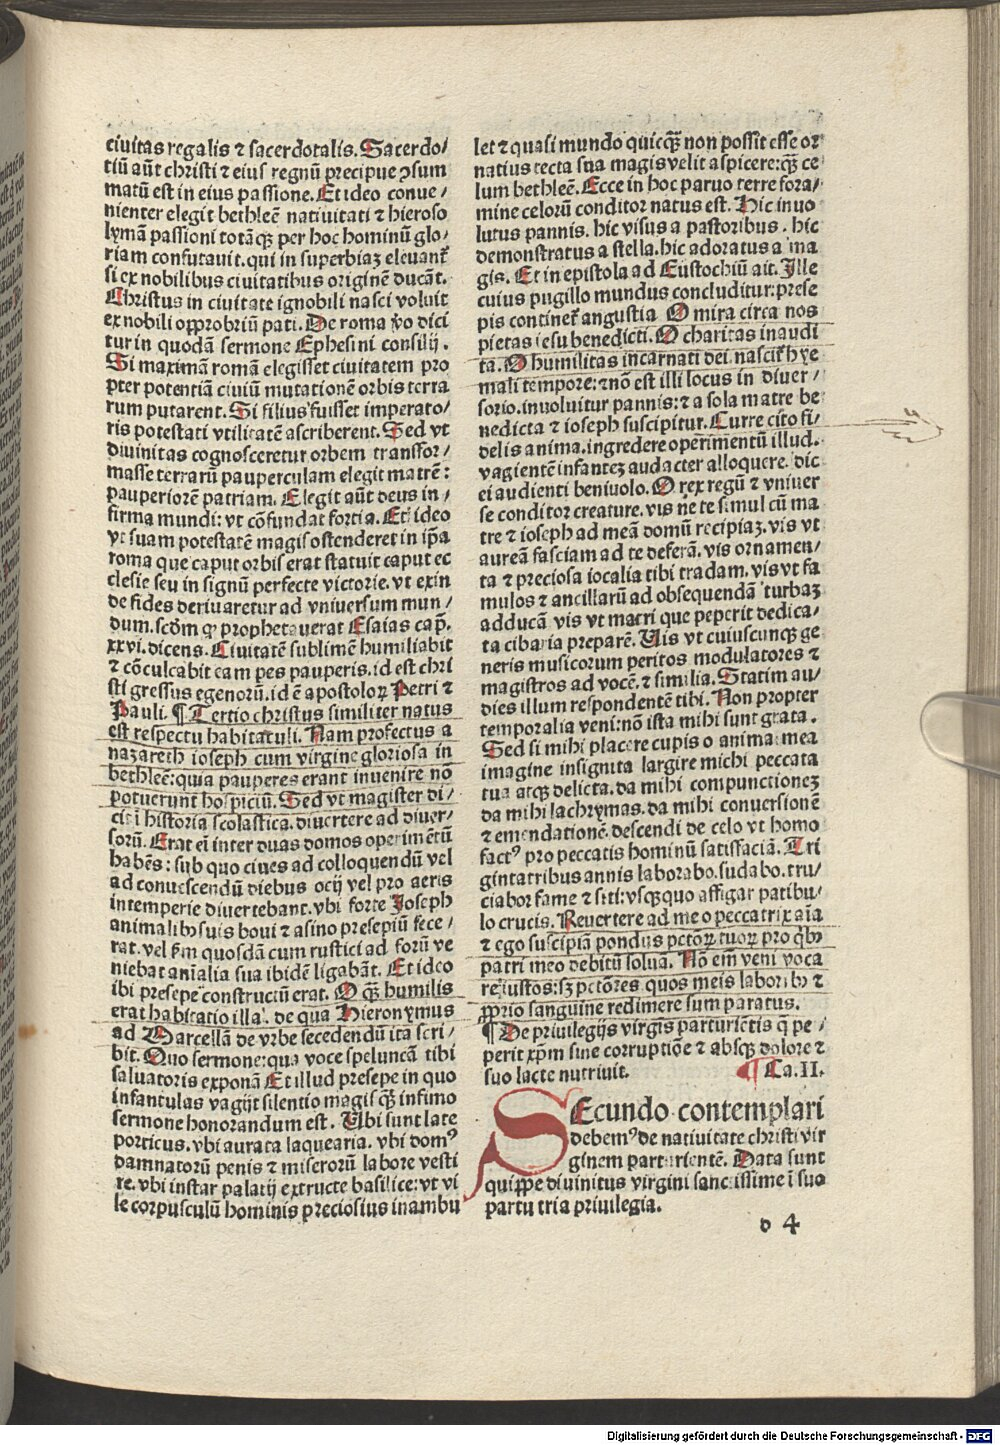 ciuitas regalis ⁊ sacerdotalis. Sacerdo/
tiū aūt christi ⁊ eius regnū precipue ꝯsum
matū est in eius passione. Et ideo conue/
nienter elegit bethleē natiuitati ⁊ hieroso
lymā passioni totāqꝫ per hoc hominū glo/
riam confutauit. qui in superbiaꝫ eleuant᷑
si ex nobilibus ciuitatibus originē ducāt.
Christus in ciuitate ignobili nasci voluit
ex nobili opprobriū pati. De roma v̄o dici
tur in quodā sermone Ephesini consilij.
Si maximā romā elegisset ciuitatem pro
pter potentiā ciuiū mutationē orbis terra
rum putarent. Si filius fuisset imperato/
ris potestati vtilitatē ascriberent. Sed vt
diuinitas cognosceretur orbem transfor/
masse terrarū pauperculam elegit matrē:
pauperiorē patriam. Elegit aūt deus in/
firma mundi: vt cōfundat fortia. Et ideo
vt suam potestatē magis ostenderet in ip̄a
roma que caput orbis erat statuit caput ec
clesie seu in signū perfecte victorie. vt exin
de fides deriuaretur ad vniuersum mun/
dum. scdm̄ qꝫ prophetauerat Esaias cap̄.
xxvi. dicens. Ciuitatē sublimē humiliabit
⁊ cōculcabit eam pes pauperis. id est chri
sti gressus egenorū. id ē apostoloꝝ Petri ⁊
Pauli. ¶ Tertio christus similiter natus
est respectu habitaculi. Nam profectus a
nazareth ioseph cum virgine gloriosa in
bethleē: quia pauperes erant inuenire nō
potuerunt hospiciū. Sed vt magister di/
cit i historia scolastica. diuertere ad diuer/
sorū. Erat ei inter duas domos operimētū
habēs: sub quo ciues ad colloquendū vel
ad conuescendū diebus ocij vel pro aeris
intemperie diuertebant. vbi forte Joseph
animalibꝰ suis boui ⁊ asino presepiū fece/
rat. vel s̄m quosdā cum rustici ad forū ve
niebāt anīalia sua ibidē ligabāt. Et ideo
ibi presepe constructū erat. O qꝫ̄ humilis
erat habitatio illa. de qua Hieronymus
ad Marcellā de vrbe secedendū ita scri/
bit. Quo sermone: qua voce speluncā tibi
saluatoris exponā Et illud presepe in quo
infantulas vagijt silentio magis qꝫ̄ infimo
sermone honorandum est. Ubi sunt late
porticus. vbi aurata laquearia. vbi domꝰ
damnatorū penis ⁊ miserorū labore vesti
te. vbi instar palatij extructe basilice: vt vi
le corpusculū hominis preciosius inambu
let ⁊ quasi mundo quicqꝫ̄ non possit esse or
natius tecta sua magis velit aspicere: qꝫ̄ ce
lum bethleē. Ecce in hoc paruo terre fora/
mine celorū conditor natus est. Hic inuo
lutus pannis. hic visus a pastoribus. hic
demonstratus a stella. hic adoratus a ma
gis. Et in epistola ad Eustochiū ait. Ille
cuius pugillo mundus concluditur: prese
pis continet᷑ angustia O mira circa nos
pietas iesu benedicti. O charitas inaudi
ta. O humilitas incarnati dei nascit᷑ hye
mali tempore: ⁊ nō est illi locus in diuer/
sorio. inuoluitur pannis: ⁊ a sola matre be
nedicta ⁊ ioseph suscipitur. Curre cito fi/
delis anima. ingredere operimentū illud.
vagientē infanteꝫ audacter alloquere. dic
ei audienti beniuolo. O rex regū ⁊ vniuer
se conditor creature. vis ne te simul cū ma
tre ⁊ ioseph ad meā domū recipiaꝫ. vis vt
aureā fasciam ad te deferā. vis ornamen/
ta ⁊ preciosa iocalia tibi tradam. vis vt fa
mulos ⁊ ancillarū ad obsequendā turbaꝫ
adducā vis vt matri que peperit dedica/
ta cibaria preparē. Uis vt cuiuscunqꝫ ge
neris musicorum peritos modulatores ⁊
magistros ad vocē. ⁊ similia. Statim au/
dies illum respondentē tibi. Non propter
temporalia veni: nō ista mihi sunt grata.
Sed si mihi placere cupis o anima mea
imagine insignita largire michi peccata
tua atqꝫ delicta. da mihi compunctioneꝫ
da mihi lachrymas. da mihi conuersionē
⁊ emendationē. descendi de celo vt homo
factꝰ pro peccatis hominū satisfaciā. Tri
ginta tribus annis laborabo. sudabo. cru/
ciabor fame ⁊ siti: vsqꝫ quo affigar patibu/
lo crucis. Reuertere ad me o peccatrix aīa
⁊ ego suscipiā pondus pctōꝝ tuoꝝ pro qͥbꝰ
patri meo debitū soluā. Nō em̄ veni voca
re iustos: sꝫ pctōres quos meis laboribꝰ ⁊
ꝓprio sanguine redimere sum paratus.
¶ De priuilegijs virgis parturiētis q̄ pe/
perit xp̄m sine corruptiōe ⁊ absqꝫ dolore ⁊
suo lacte nutriuit. ¶ Ca. II.
SEcundo contemplari
debemꝰ de natiuitate christi vir
ginem parturientē. Data sunt
quippe diuinitus virgini sanctissime i suo
partu tria priuilegia.
d 4
Digitalisierung gefördert durch die Deutsche Forschungsgemeinschaft - DFG